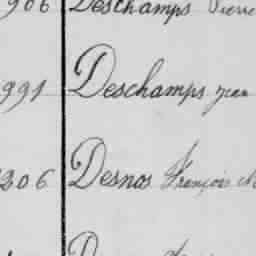 906 Deschamps Pierre
991 Deschamps Jean
206 Desnos François